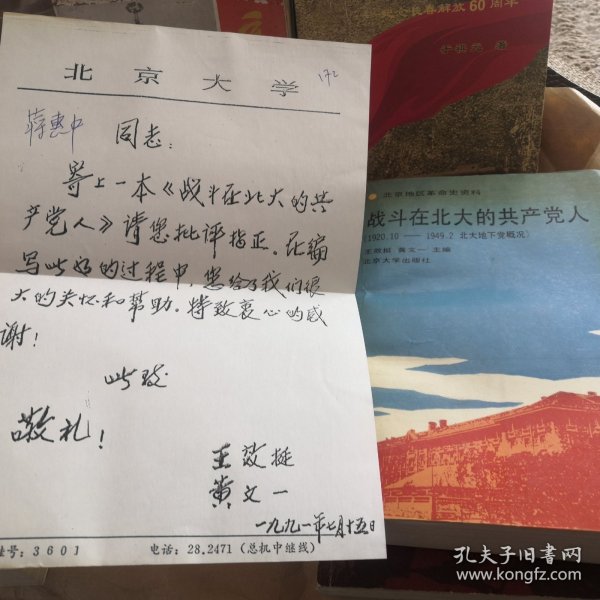 北京大学
172
蒋惠中 同志:
寄上一本《战斗在北大的共
产党人》请您批评指正。在编
写此书的过程中,您给了我们很
大的关怀和帮助。特致衷心的感
谢!
此致
敬礼!
王效挺
黄文一
一九九一年七月十五日
挂号:3601 电话:28.2471(总机中继线)
春解放60周年
著
北京地区革命史资料
战斗在北大的共产党人
(1920.10——1949.2 北大地下党概况)
王效挺 黄文一 主编
北京大学出版社
孔夫子旧书网
www.kongfz.com